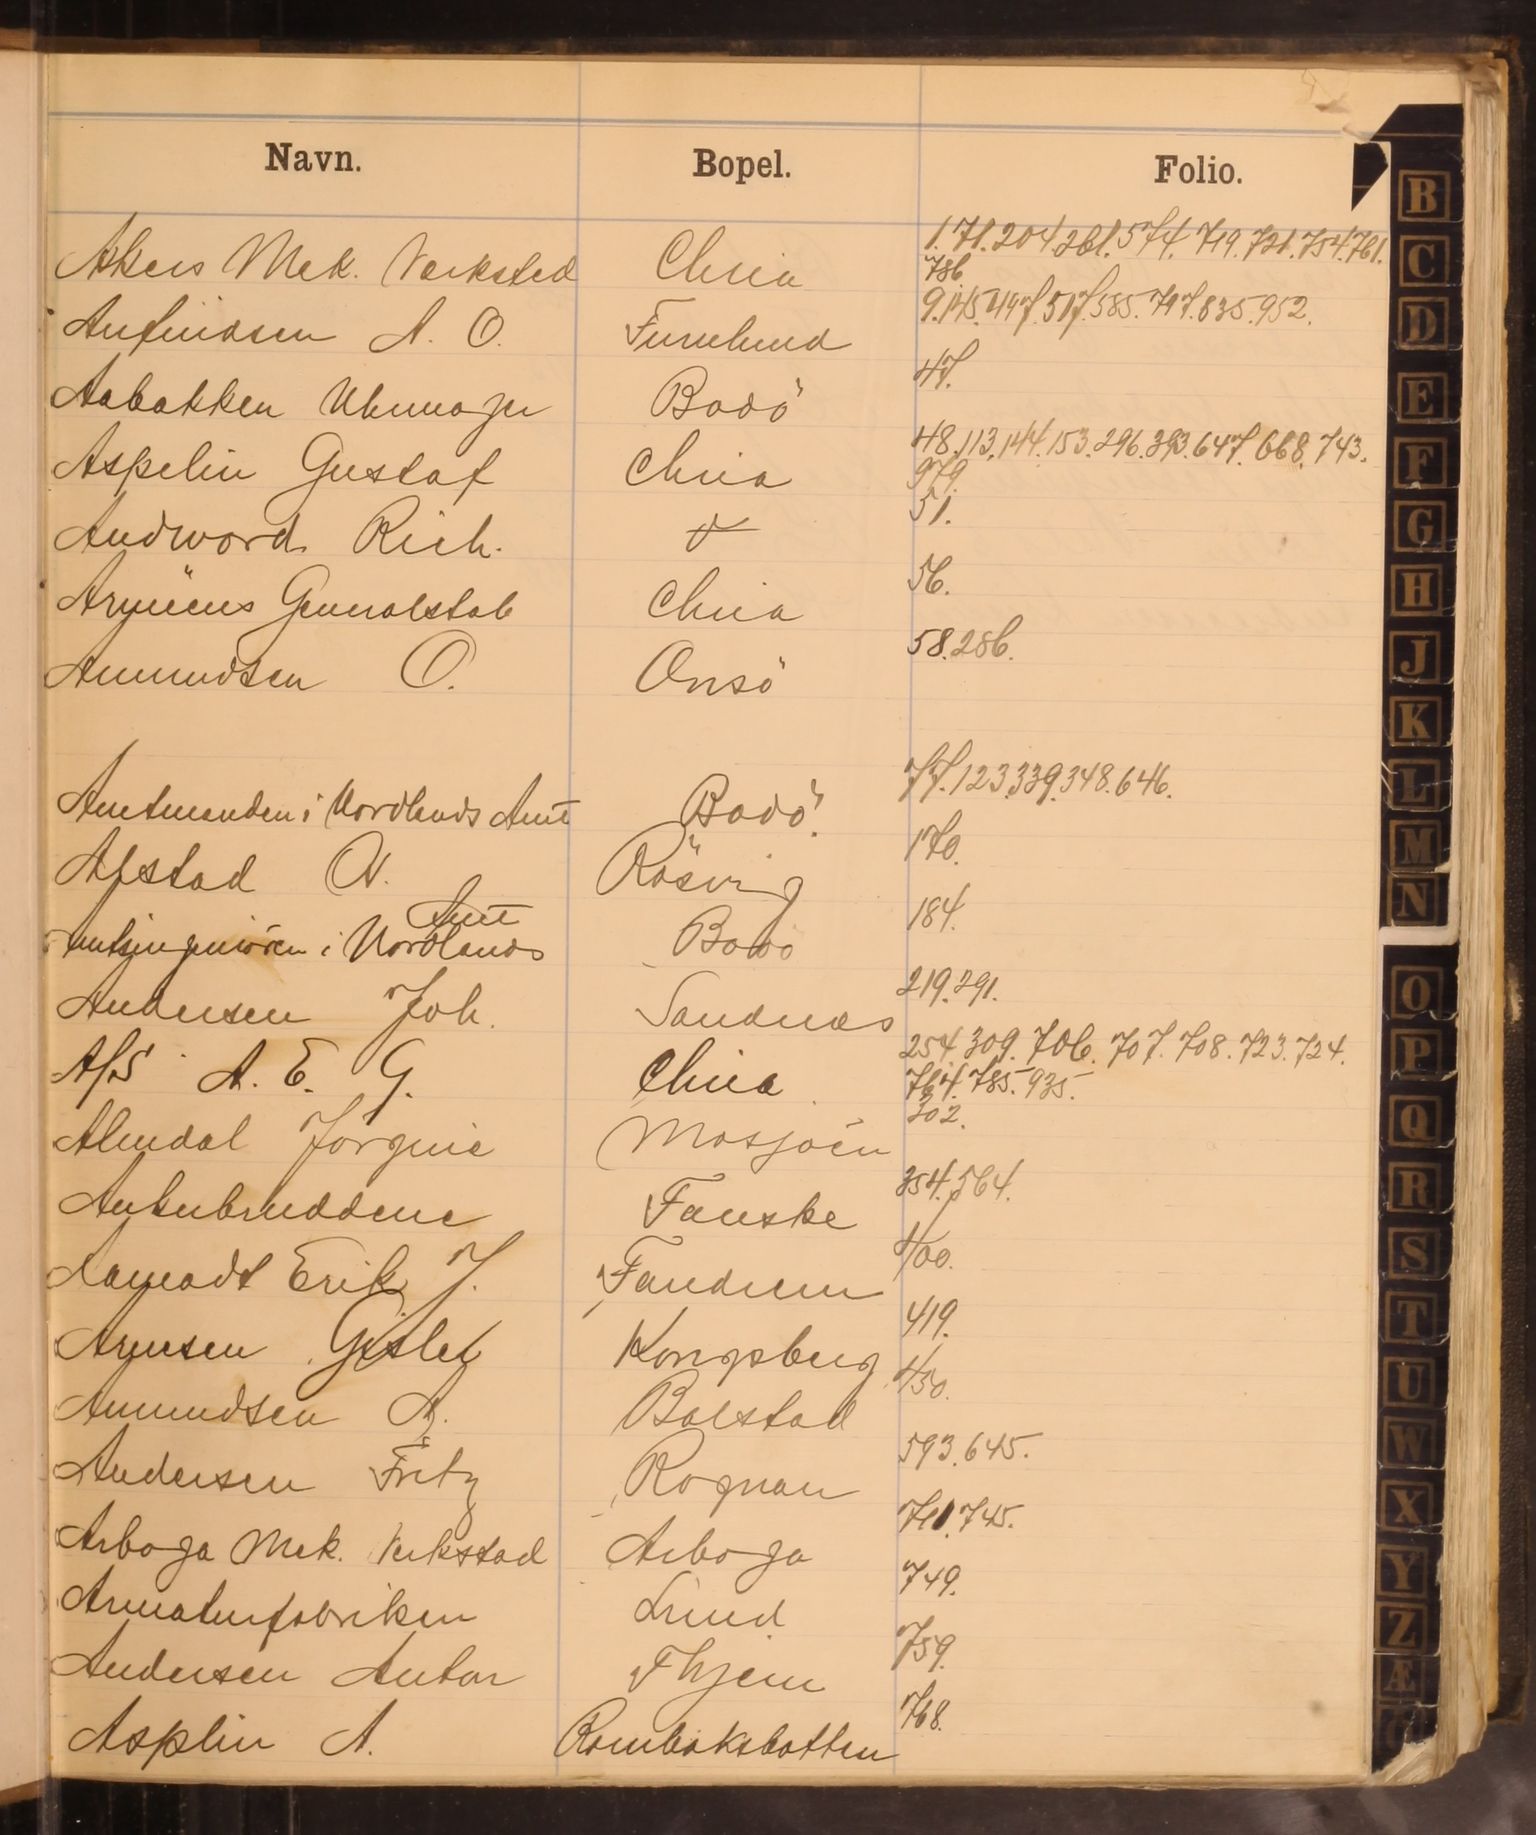 Navn. Bopel. Folio.
Akers Mek. Værksted Chria 1. 71. 204. 261. 574. 719. 721. 754. 761.
786.
Anfindsen A. O. Furulund 9. 145. 447. 517. 585. 717. 835. 952.
Aabakken Uhrmager Bodö 47.
Aspelin Gustaf Chria 48. 113. 144. 153. 296. 393. 647. 668. 743.
979.
Andword Rich. 51.
Armeens Generalstab Chria 56.
Amundsen O. Onsö 58. 286.
Amtmanden i Nordlands Amt Bodö. 77. 123. 339. 348. 646.
Alstad N. Rösvig 170.
Amt
Amtsingeniören i Nordlands Bodö 184.
Andersen Joh. Sandnæs 219. 291.
A/S A. E. G. Chria. 254. 309. 706. 707. 708. 723. 724.
764. 785. 935.
Almdal Jörgine Mosjöen 302.
Ankerbruddene Fauske 354. 564.
Erik J. Fandrem 400.
Arnesen Gisle Kongsberg 419.
Amundsen A. Bolstad 450.
Andersen Fritz Rognan 593. 645.
Arboga Mek. Verkstad Arboga 711. 745.
Armaturfabriken Lund 749.
Andersen Anton Thjem 759.
Asplin A. Rombaksbotten 768.
B
C
D
E
F
G
H
J
K
L
M
N
O
P
Q
R
S
T
U
W
X
Y
Z
Æ